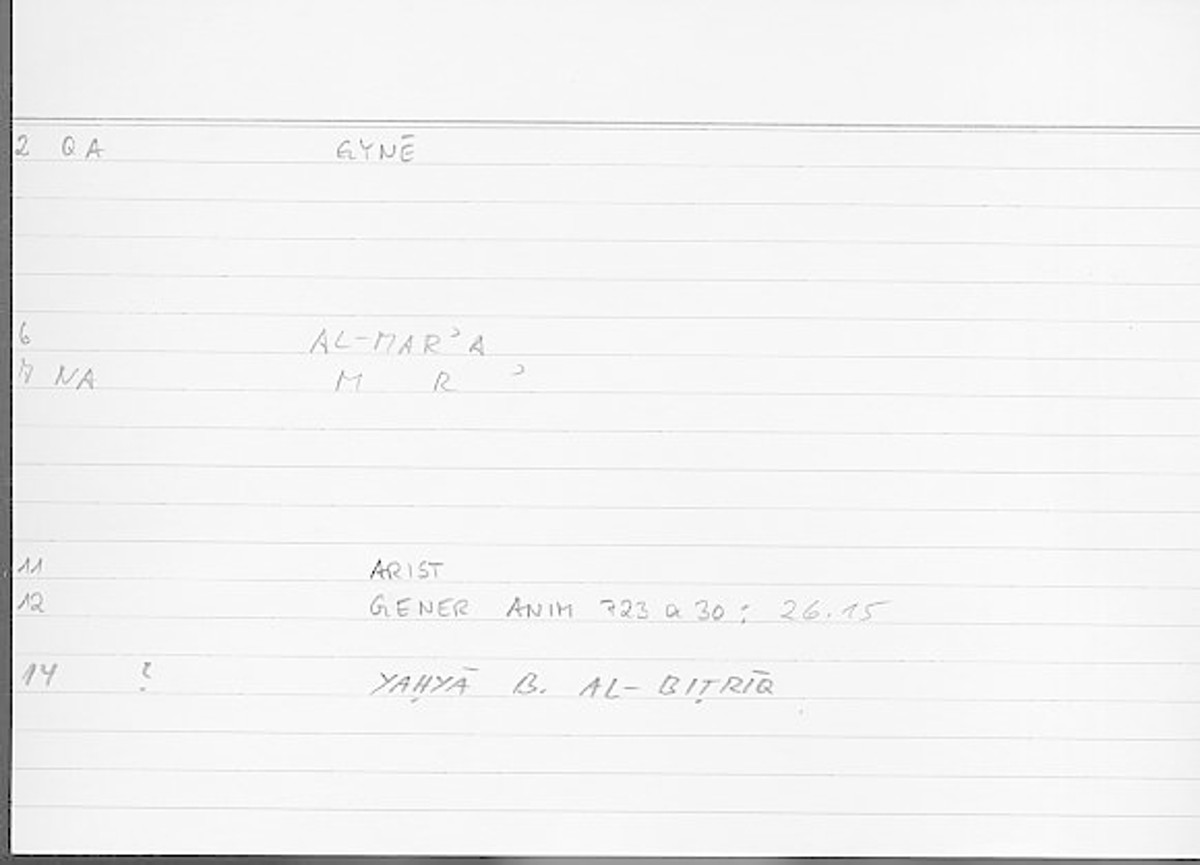 2 QA GYNĒ
6 AL-MARʾA
7 NA M R ʾ
11 ARIST
12 GENER ANIM 723 a 30 : 26.15
14 ? YAḤYĀ B. AL-BIṬRĪQ